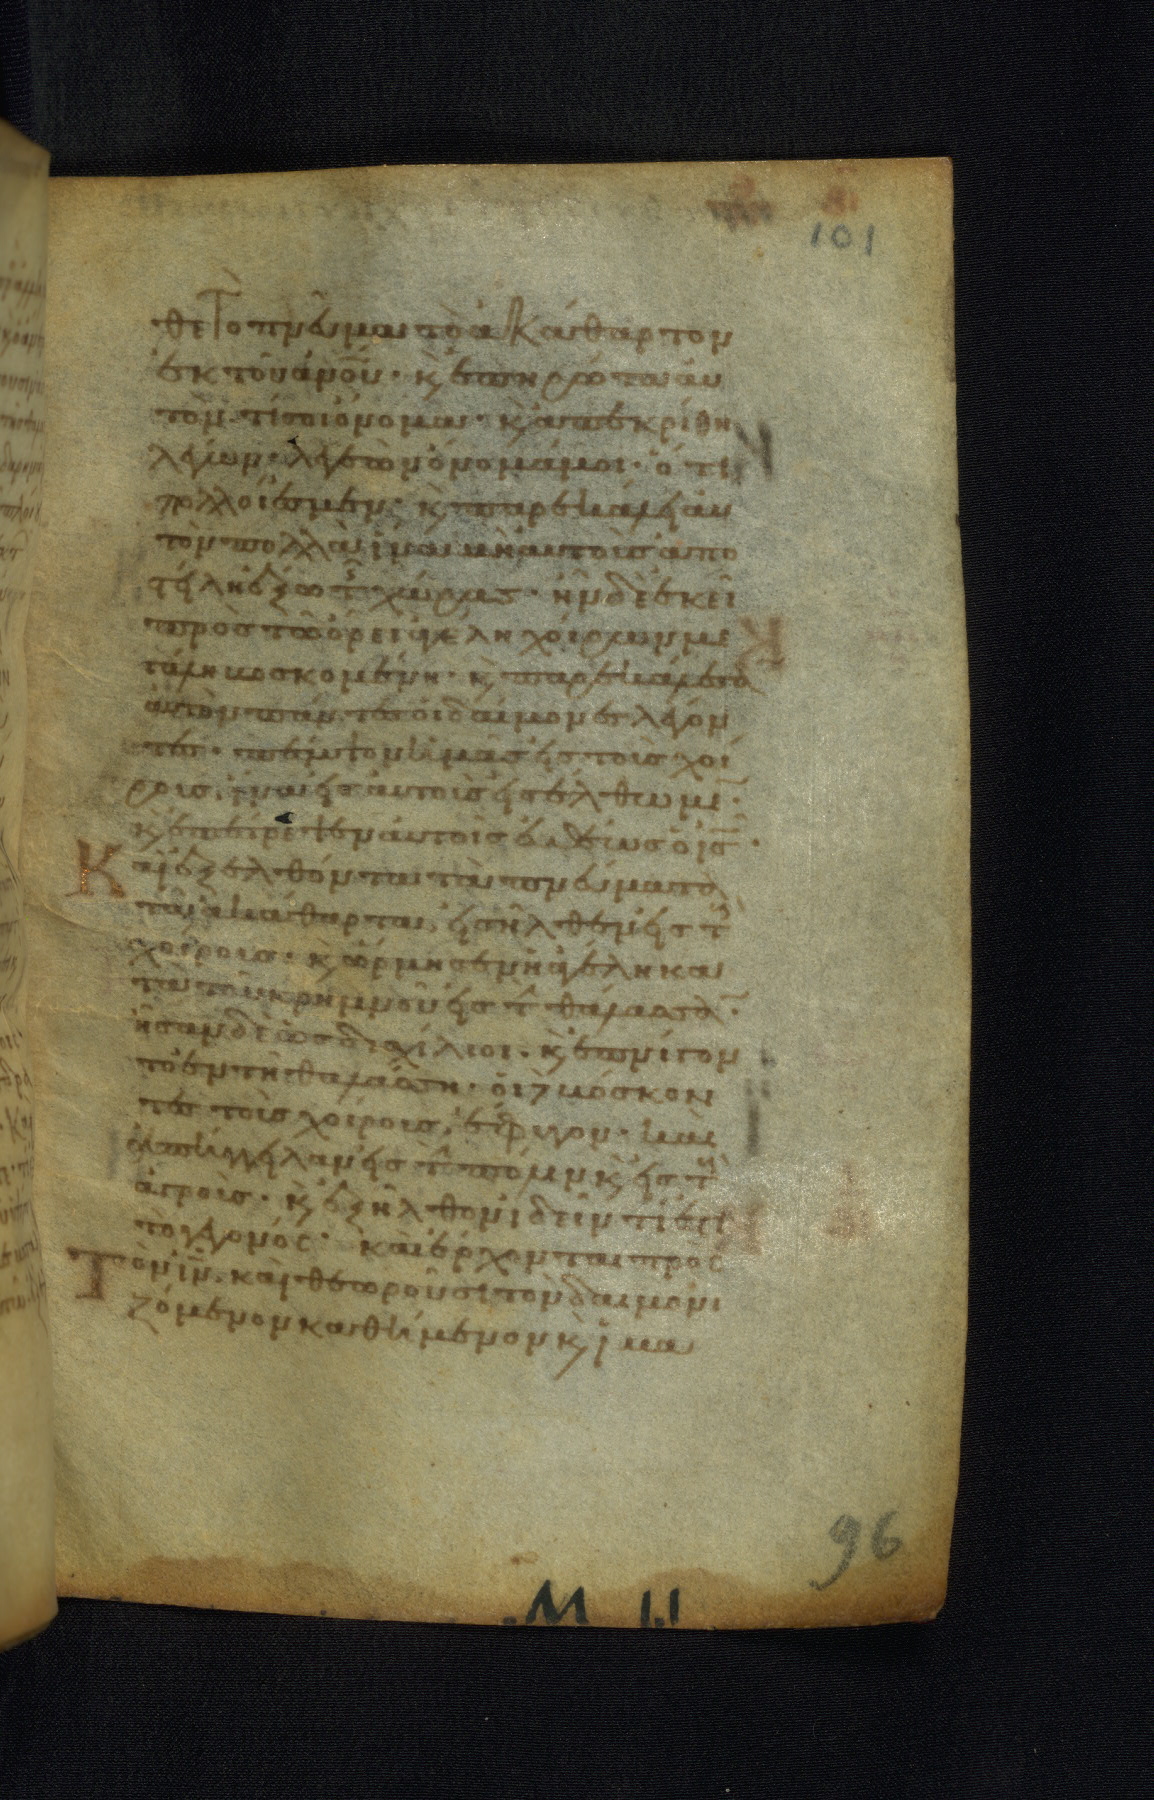 101
θε το πνεῦμα τὸ ἀκάθαρτον
ἐκ τοῦ ἀνου̅· κ̀ ἐπηρώτα αὐ
τὸν τί σοι ὄνομα· κ̀ ἀπεκρίθη
λέγων· λεγεὼν ὄνομά μοι· ὅτι
πολλοί ἐσμεν· κ̀ παρεκάλει αὐ
τὸν πολλὰ ἵνα μὴ αὐτοὺς ἀπο
στείλη ἔξω τῆς χώρας· ἦν δὲ ἐκεῖ
πρὸς τῶ ὄρει ἀγέλη χοίρων με
γάλη βοσκομένη· κ̀ παρεκάλεσα
αὐτὸν πάντες οἱ δαίμονες λέγον
τες· πέμψον ἡμᾶς εἰς τοὺς χοί
ρους ἵνα εἰς αὐτοὺς εἰσέλθωμεν·
κ̀ ἐπέτρεψεν αὐτοῖς εὐθέως ὁ ις̅·
Κ αὶ ἐξελθόντα τὰ πνεύματα
τὰ ἀκάθαρτα εἰσῆλθεν εἰς τοὺς
χοίρους· κ̀ ὥρμησεν ἡ ἀγέλη κα
τὰ τοῦ κρημνοῦ εἰς τὴν θάλασσαν·
ἦσαν δὲ ὡς δισχίλιοι· κ̀ ἐπνίγον
το ἐν τῆ θαλάσση· οἱ δὲ βόσκον
τες τοὺς χοίρους ἔφυγον· καὶ
ἀπήγγειλαν εἰς τὴν πόλιν κ̀ εἰς τοὺς
ἀγρούς· κ̀ ἐξῆλθον ἰδεῖν τί ἐστι
τὸ γεγονός· καὶ ἔρχονται πρὸς
Τὸν ιν̅· καὶ θεωροῦσι τὸν δαιμονι
ζόμενον καθήμενον κ̀ ἱμα
96